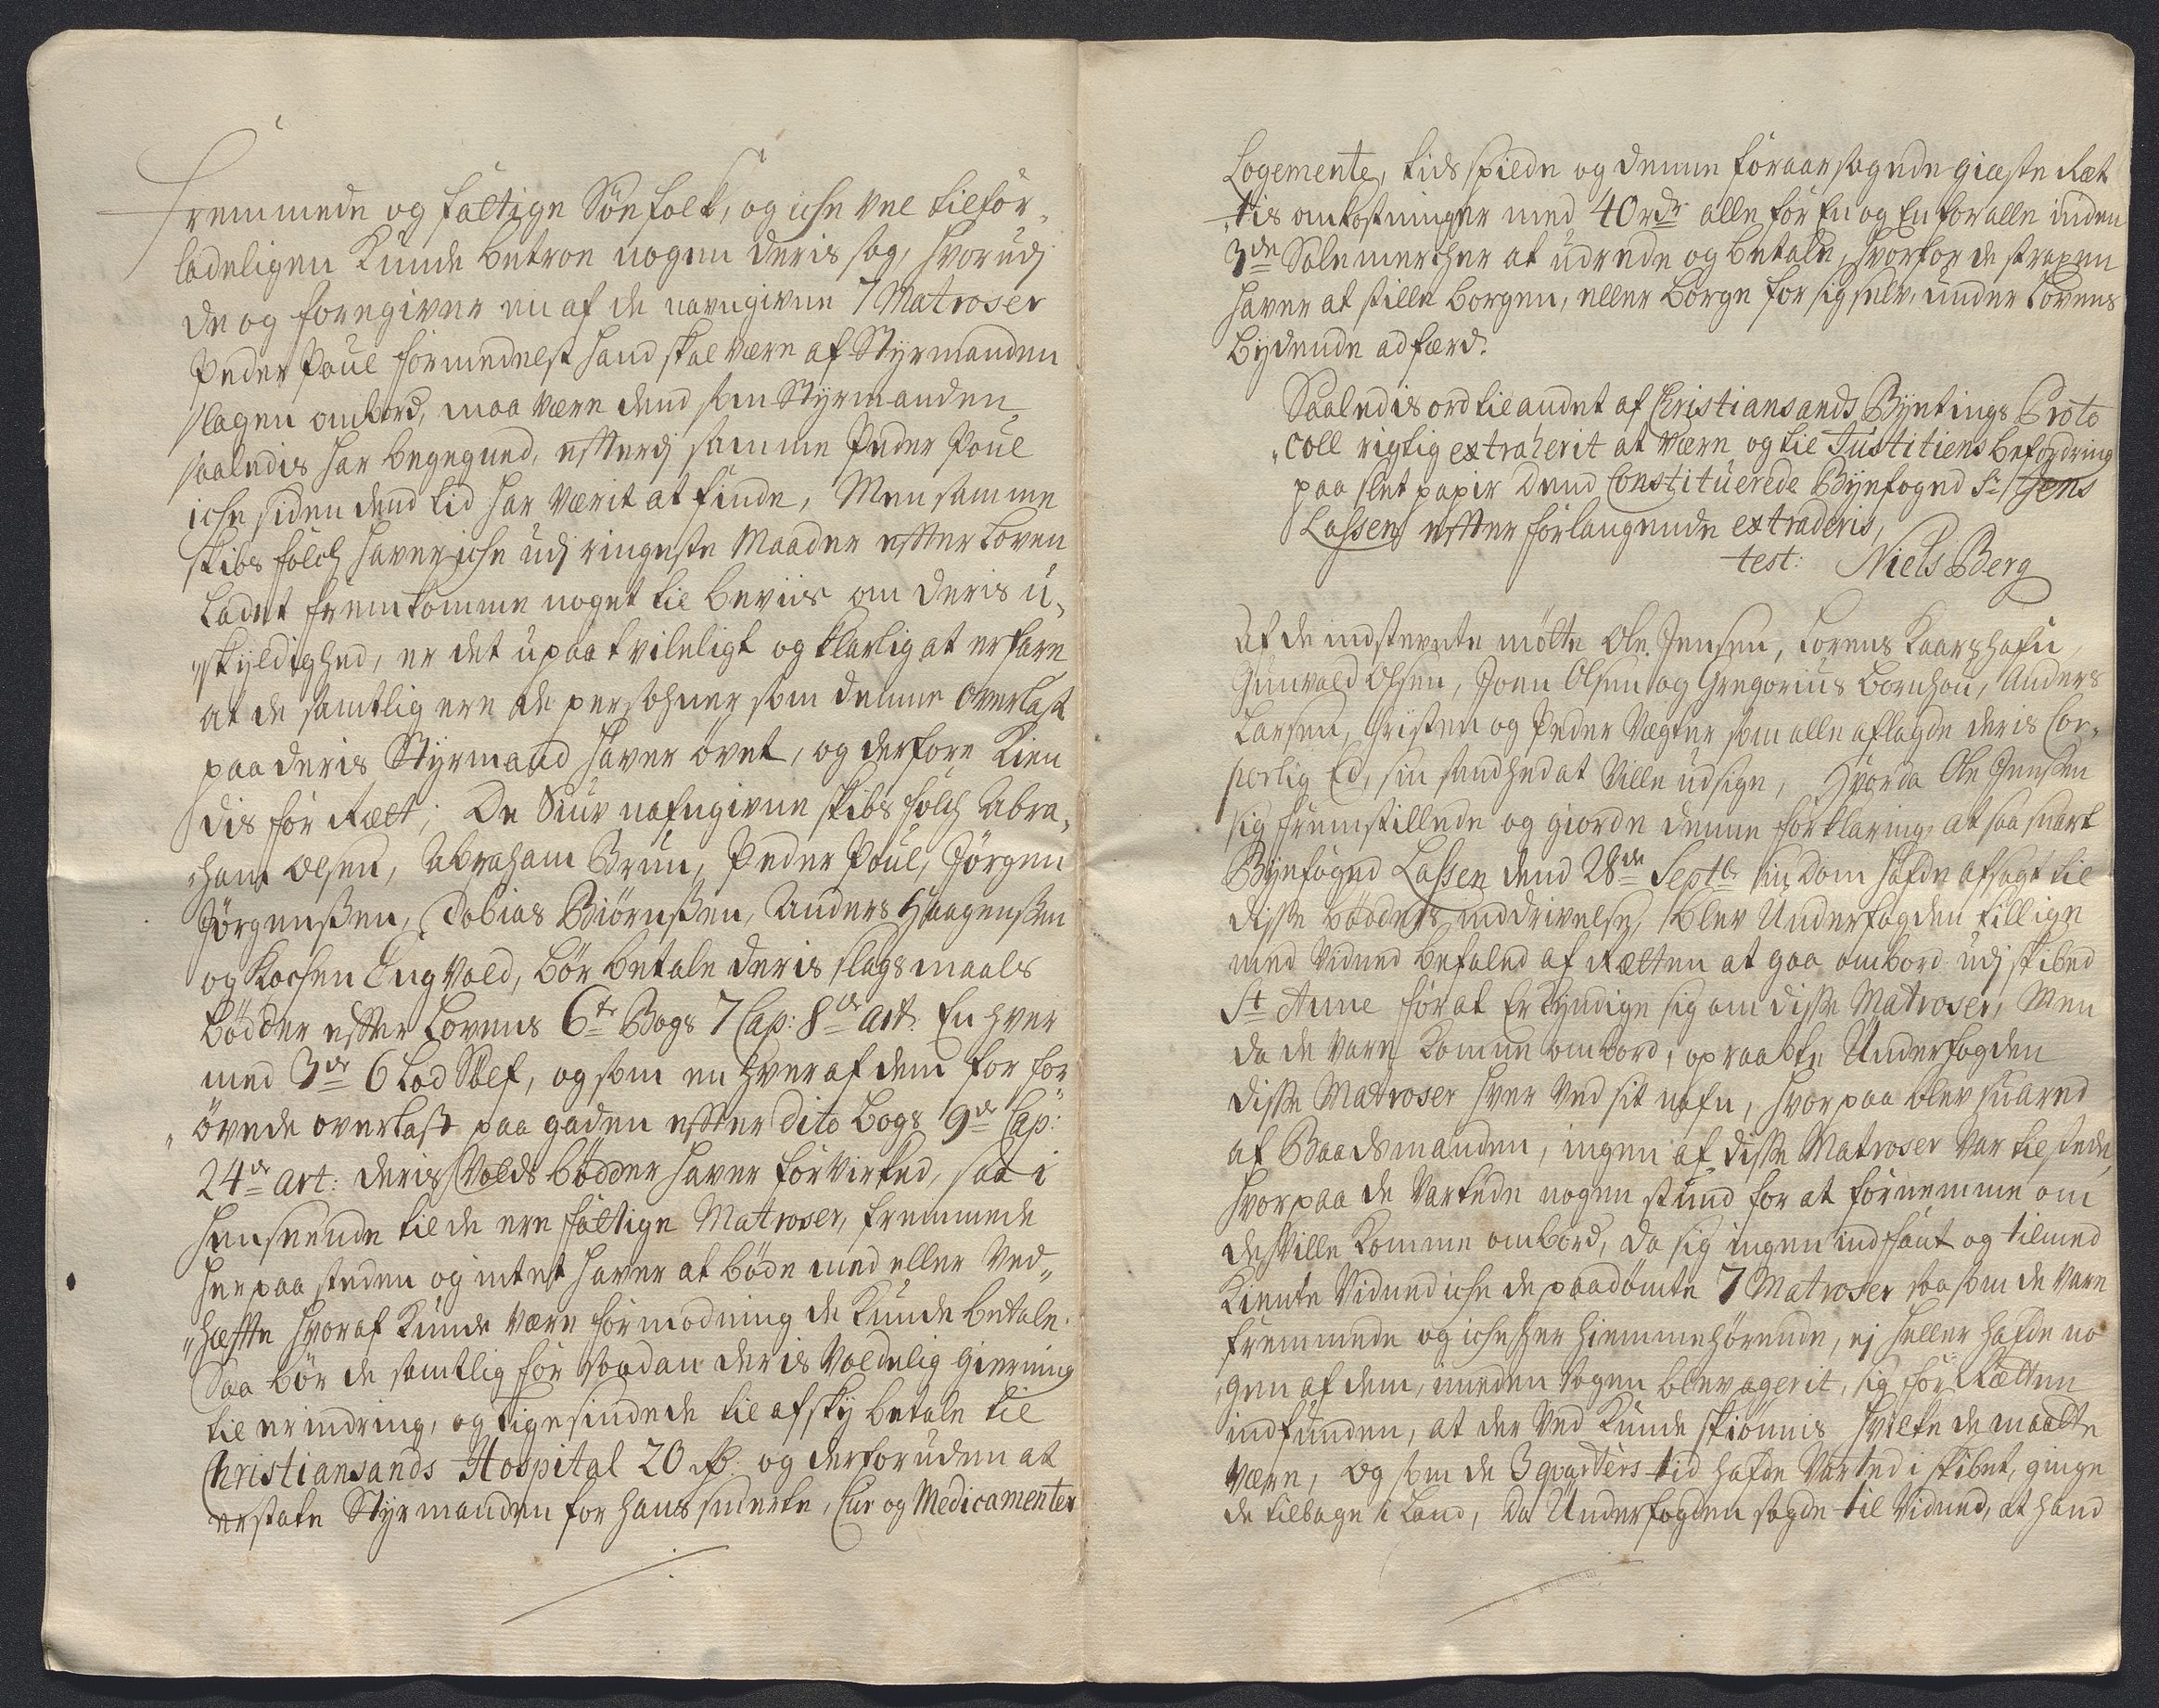 Fremmede og fattige Söefolk, og iche vel tilfor-
ladeligen Kunde betroe nogen deris sag, hvorudj
de og foregiver en af de navngivne 7 Matroser
Peder Poul formedelst hand skal være af Styrmanden
slagen ombord, maa være dend som Styrmanden
saaledis har begegned, efterdj samme Peder Poul
iche siden dend tid har værit at finde, Men samme
skibs folch haver iche udj ringeste Maader efter Loven
Ladet fremkomme noget til beviis om deris u-
„skyldighed, er det upaatvileligt og klarlig at erfare
at de samtlig ere de persohner som denne overlast
paa deris Styrmand haver övet, og derfore Kien
dis for Rætt; De Siuv nafngivne skibs folch Abra-
„ham Olsen, Abraham Brun, Peder Poul, Jörgen
Jörgenssen, Tobias Biörnssen, Anders Haagenssen
og Kochen Engvold, bör betale deris slagsmaals
bödder efter Lovens 6te Bogs 7 Cap: 8de art. En hver
med 3de 6 Lod Sölf, og som en hver af dem for for
„övede overlast paa gaden efter dito Bogs 9de Cap:
24de art: deris Volds bödder haver forvirked, saa i
henseende til de ere fattige Matroser, fremmede
her paa steden og intet haver at böde med eller ved-
„hæfte hvoraf Kunde være formodning de Kunde betale.
Saa bör de samtlig for saadan deris Voldelig gierning
til erindring, og ligesindede til afsky betale til
Christiansands Hospital 20 rd. og derforuden at
erstate Styrmanden for hans smerte, Cur og Medicamenter
Logemente, tids spilde og denne foraarsagede gieste Ræt
„tis omkostninger med 40 rdr alle for En og En for alle inden
3de Solemercher at udrede og betale, hvorfor de straxen
haver at stille borgen, eller borge for sig selv, under Lovens
bydende adfærd.
Saaledis ord til andet af Christiansands Byetings Proto
„coll rigtig extraherit at være og til Justitiens befordring
paa slet papir dend Constituerede Byefoged Sr Jens
Lassen efter forlangende extraderis,
test: Niels Berg
Af de indstevnte mötte Ole Jensen, Lorens
Gunvald Olsen, Joen Olsen og Gregorius Anders
Larsen, Christen og Peder Vægter som alle aflagde deris Cor-
porlig Ed, sin sandhed at Ville udsige, Hvorda Ole Jenssen
sig fremstillede og giorde denne forklaring, at saa snart
Byefoged Lassen dend 28de Septbr sin dom hafde afsagt til
disse bödders inddrivelse, blev Underfogden tillige
med Vidned befaled af Rætten at gaa ombord udj skibed
St Anne for at Erkyndige sig om disse Matroser, Men
da de vare Komne ombord, opraabte Underfogden
disse Matroser hver ved sit nafn, hvorpaa blev suared
af Baadsmanden, ingen af disse Matroser var tilstede,
hvorpaa de Vartede nogen stund for at fornemme om
de Ville Komme ombord, da sig ingen indfant og tilmed
Kiente Vidned iche de paadömte 7 Matroser saasom de vare
fremmede og iche her hiemmehörende, ej heller hafde no
„gen af dem, imeden sagen blev agerit, sig for Rætten
indfunden, at der ved Kunde skiönnis hvilke de maatte
være, og som de 3 qvarters tid hafde Varted i skibet, ginge
de tilbage i Land, da Underfogden sagde til Vidned, at hand